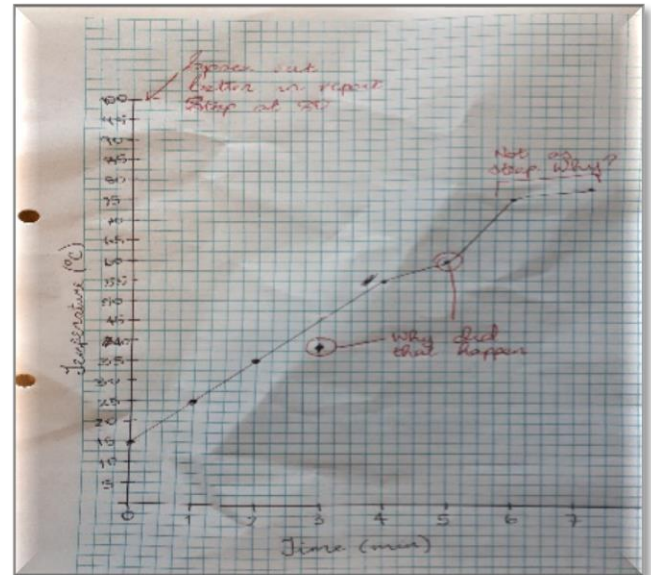 Space out
better in report
Stop at 80
Not as
steep. Why?
Why did
that happen
Temperature (°C)
75
70
65
60
55
50
45
40
35
30
25
20
15
10
5
0 1 2 3 4 5 6 7
Time (min)